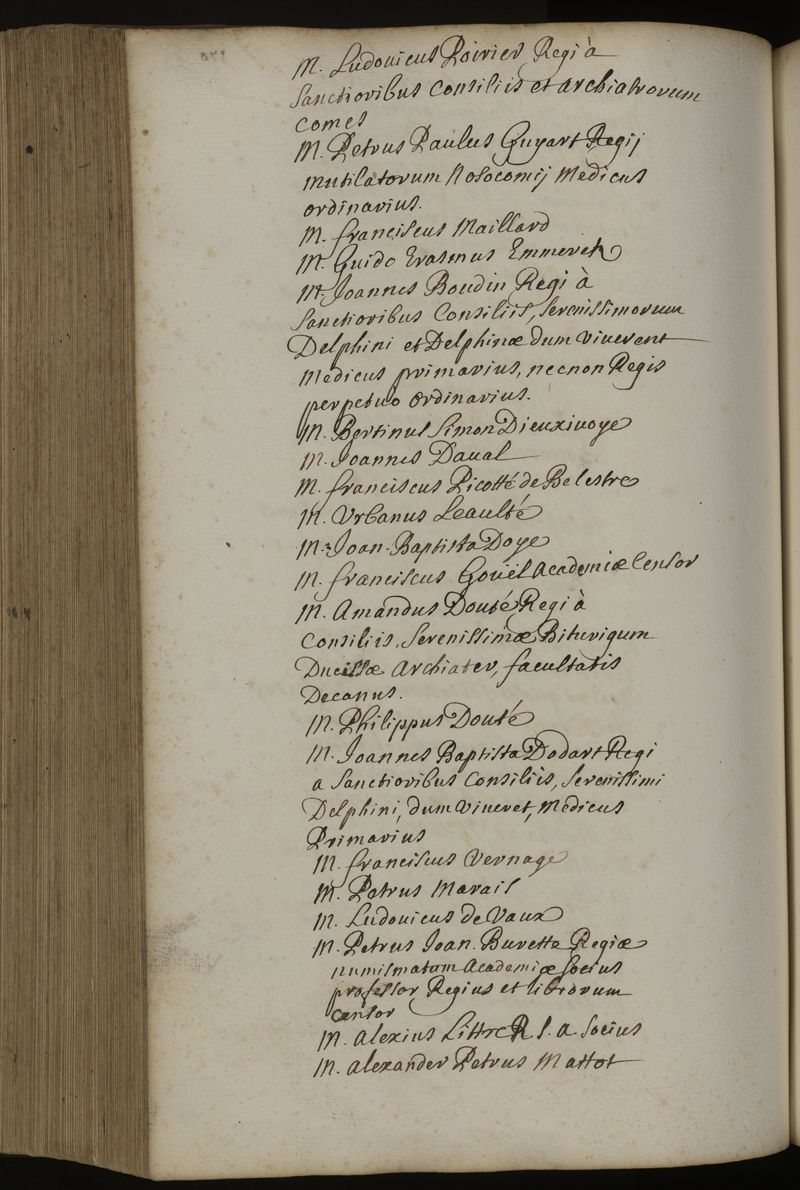 M. Ludovicus Poirier Regi à
Sanctioribus Consiliis et archiatrorum
comes
M. Petrus Paulus Guyart Regij
mutilatorum Nosocomij Medicus
ordinarius.
M. franciscus Maillard
M. Guido Erasmus Emmerek
M. Joannes Boudin Regi à
Sanctioribus Consiliis, Serenissimorum
Delphini et Delphinæ dum viverent
Medicus primarius, necnon Regis
perpetuo ordinarius.
M. Bertinus Simon Dieuxivoye
M. Joannes Daval
M. franciscus Picotté de Belestre
M. Urbanus Leaulté
M. Joan-Baptista Doye
M. franciscus Gouël Academiæ Censor
M. Amandus Douté Regi à
Consiliis, Serenissimæ Biturigum
Ducissæ Archiater, facultatis
Decanus.
M. Philippus Douté
M. Joannes Baptista Dodart Regi
a Sanctioribus Consiliis, Serenissimi
Delphini, dum viveret, Medicus
Primarius
M. franciscus Vernage
M. Petrus Marais
M. Ludovicus de Vaux
M. Petrus Joan. Burette Regiæ
numismatum Academiæ Socius
professor Regius et librorum
censor
M. Alexius Littre R. S. a Socius
M. Alexander Petrus Mattot